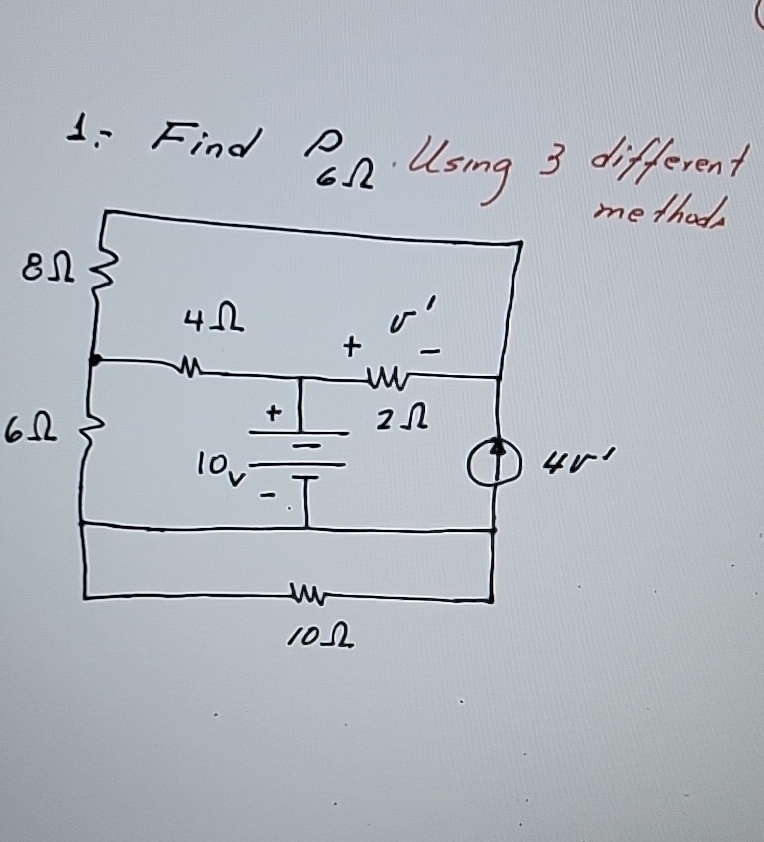 1.- Find P6Ω. Using 3 different
methods
8Ω
4Ω
v'
+ -
6Ω
+
2Ω
10v
4v'
-
10Ω